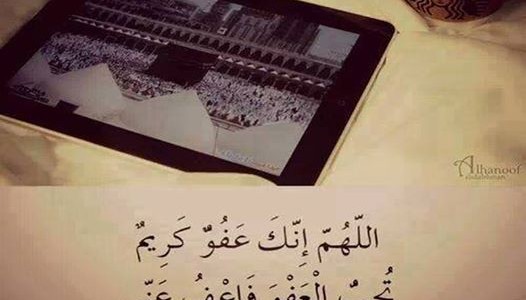 Alhanoof
اللّهُمّ إِنّكَ عَفُوٌّ كَرِيمٌ
تُحِبُّ الْعَفْوَ فَاعْفُ عَنِّي